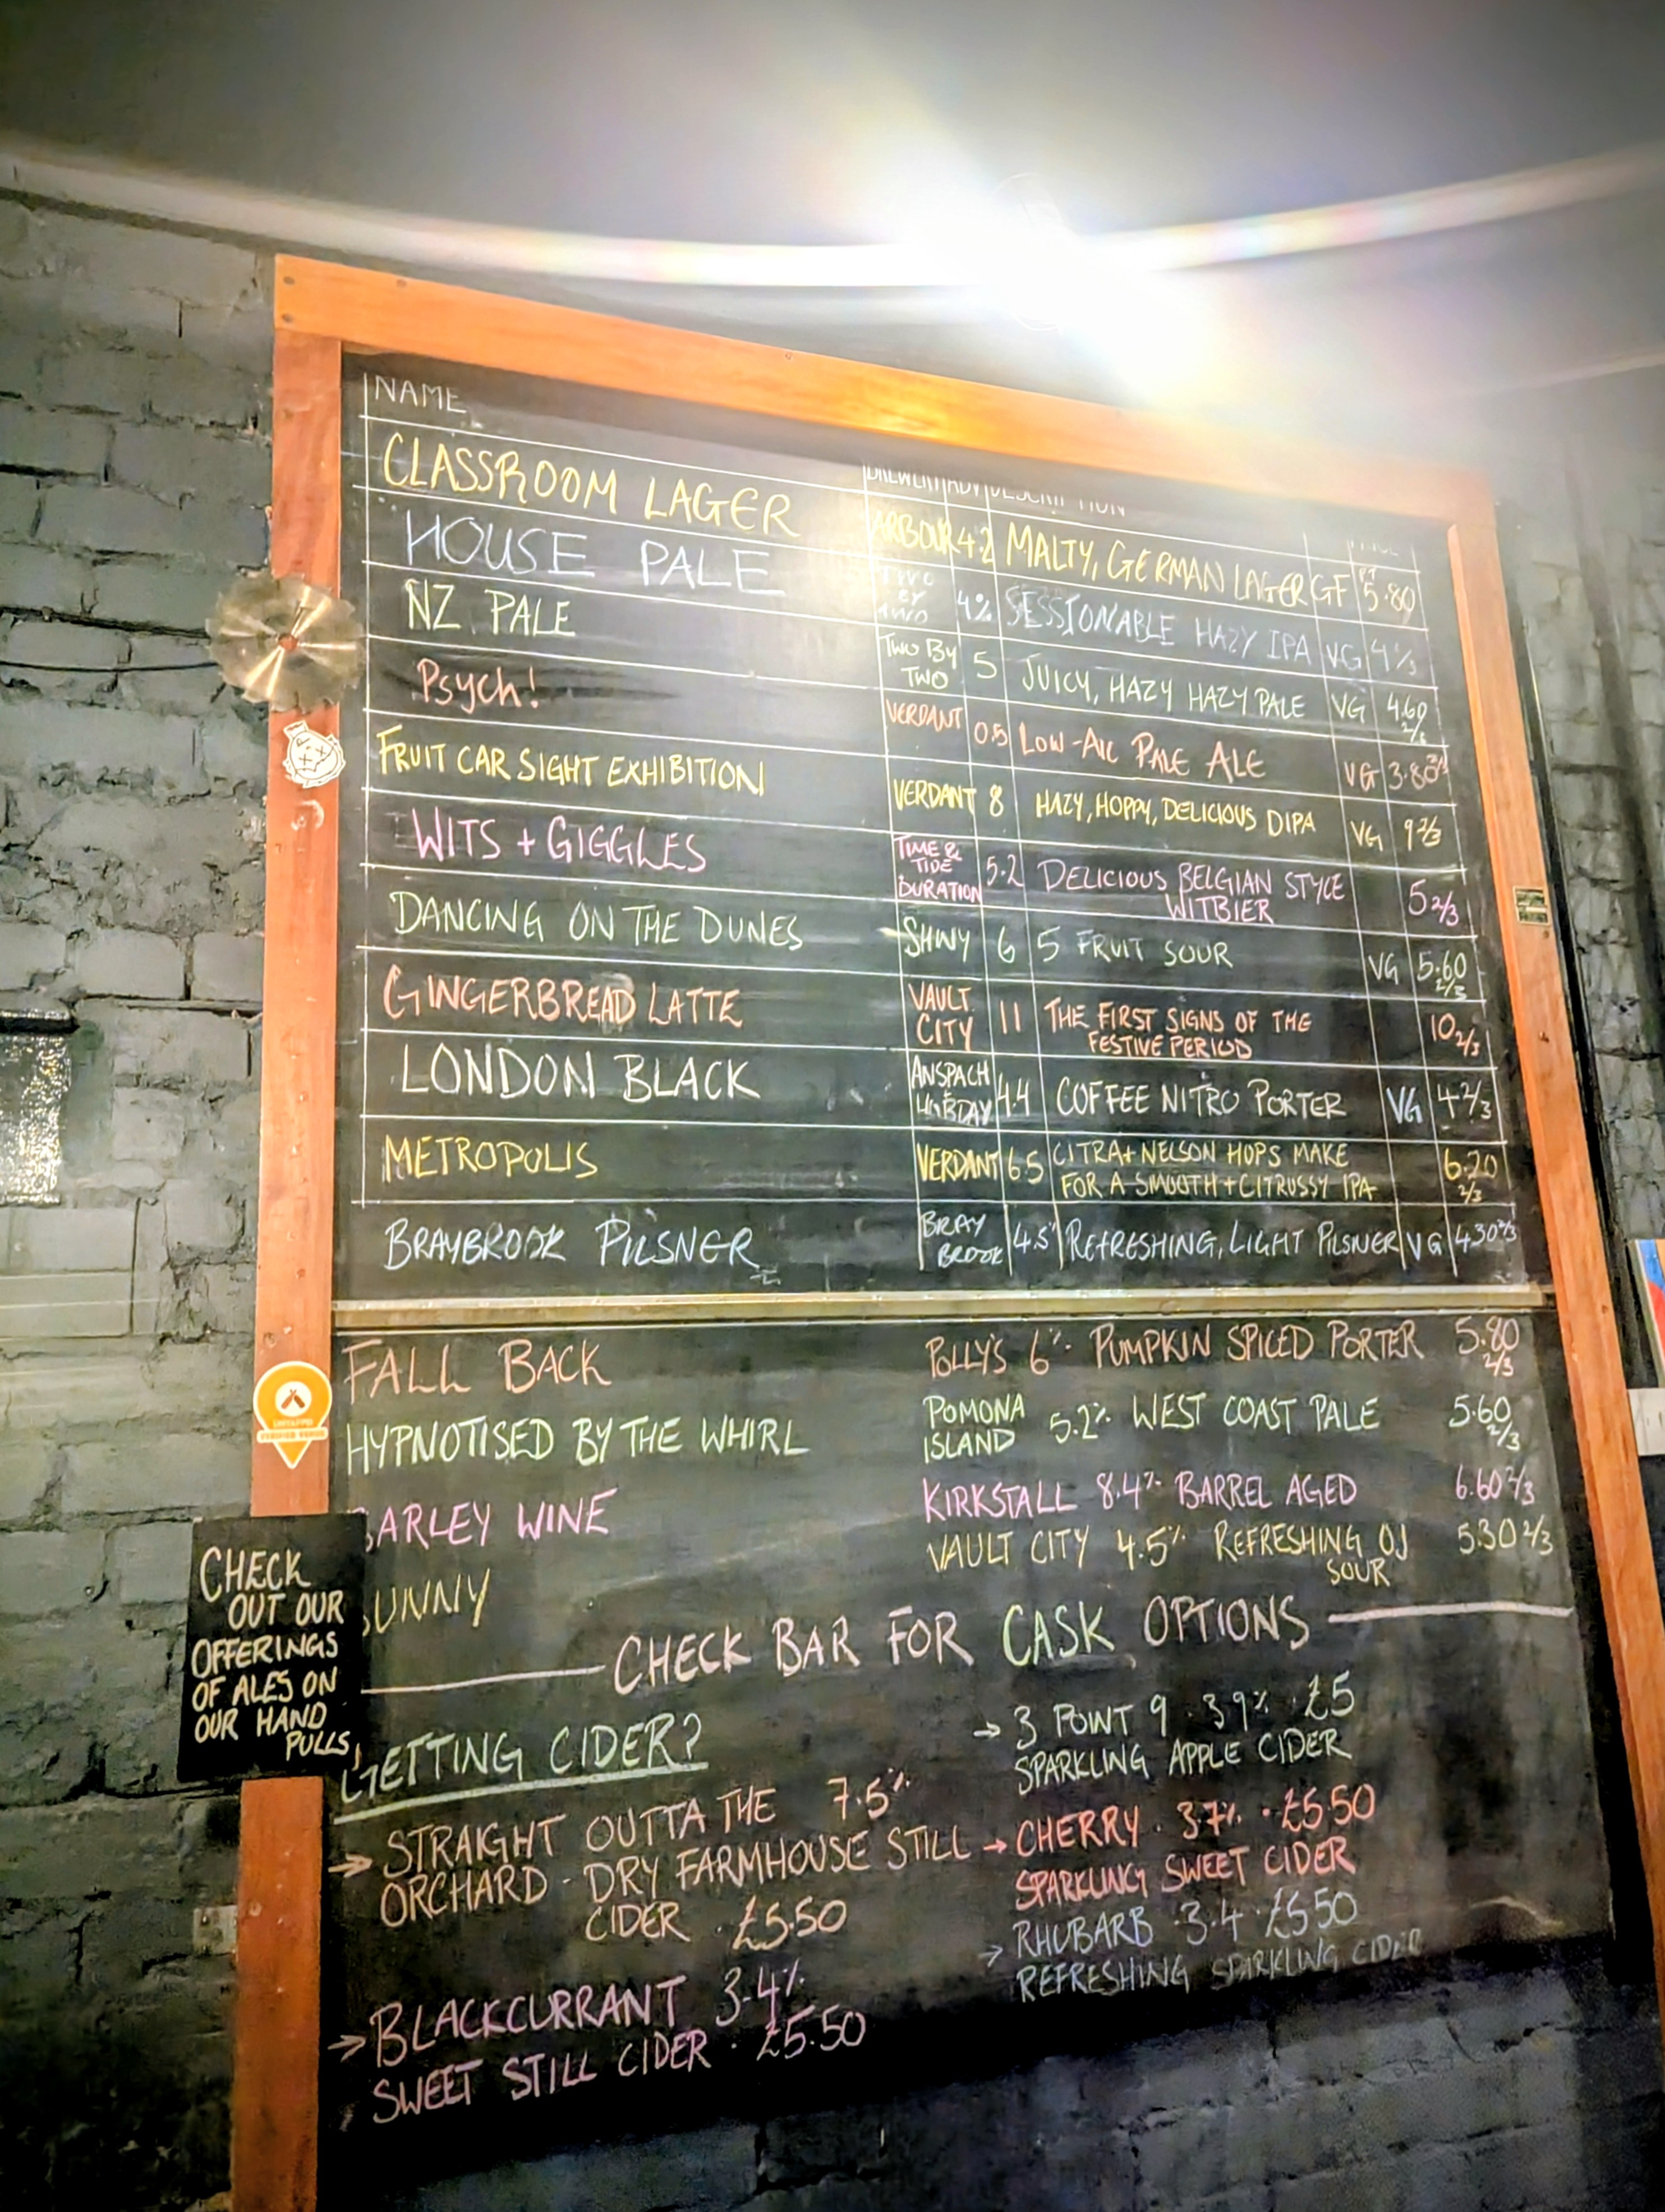 NAME BREWERY ABV DESCRIPTION
CLASSROOM LAGER ARBOUR 4.2 MALTY, GERMAN LAGER GF PT 5.80
HOUSE PALE TWO BY TWO 4% SESSIONABLE HAZY IPA VG 4 2/3
NZ PALE TWO BY TWO 5 JUICY, HAZY HAZY PALE VG 4.60 2/3
Psych! VERDANT 0.5 LOW-ALC PALE ALE VG 3.80 2/3
FRUIT CAR SIGHT EXHIBITION VERDANT 8 HAZY, HOPPY, DELICIOUS DIPA VG 9 2/3
WITS + GIGGLES TIME & TIDE DURATION 5.2 DELICIOUS BELGIAN STYLE WITBIER 5 2/3
DANCING ON THE DUNES SHINY 6 5 FRUIT SOUR VG 5.60 2/3
GINGERBREAD LATTE VAULT CITY 11 THE FIRST SIGNS OF THE FESTIVE PERIOD 10 2/3
LONDON BLACK ANSPACH & HOBDAY 4.4 COFFEE NITRO PORTER VG 4 2/3
METROPOLIS VERDANT 6.5 CITRA + NELSON HOPS MAKE FOR A SMOOTH + CITRUSSY IPA 6.20 2/3
BRAYBROOK PILSNER BRAY BROOK 4.5 REFRESHING, LIGHT PILSNER VG 4.30 2/3
FALL BACK POLLY'S 6% PUMPKIN SPICED PORTER 5.80 2/3
HYPNOTISED BY THE WHIRL POMONA ISLAND 5.2% WEST COAST PALE 5.60 2/3
BARLEY WINE KIRKSTALL 8.4% BARREL AGED 6.60 2/3
SUNNY VAULT CITY 4.5% REFRESHING OJ SOUR 5.30 2/3
CHECK BAR FOR CASK OPTIONS
CHECK
OUT OUR
OFFERINGS
OF ALES ON
OUR HAND
PULLS!
GETTING CIDER?
→ STRAIGHT OUTTA THE 7.5%
ORCHARD - DRY FARMHOUSE STILL
CIDER · £5.50
→ BLACKCURRANT 3.4%
SWEET STILL CIDER · £5.50
→ 3 POINT 9 · 3.9% · £5
SPARKLING APPLE CIDER
→ CHERRY · 3.7% · £5.50
SPARKLING SWEET CIDER
→ RHUBARB · 3.4 · £5.50
REFRESHING SPARKLING CIDER